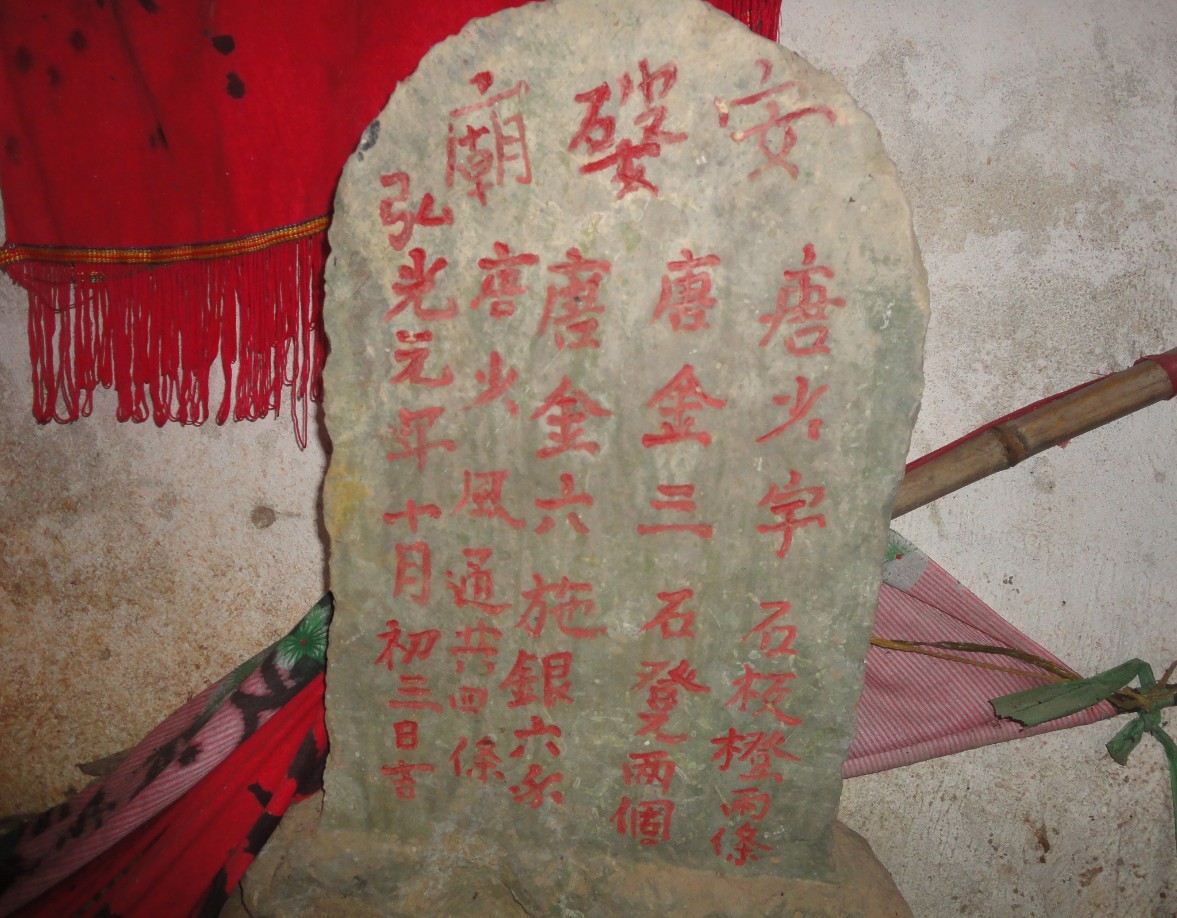 安廟
唐少宇 石板橙兩條
唐金三 石凳兩個
唐金六 施銀六
唐少風 通共四條
弘光元年十月初三日吉